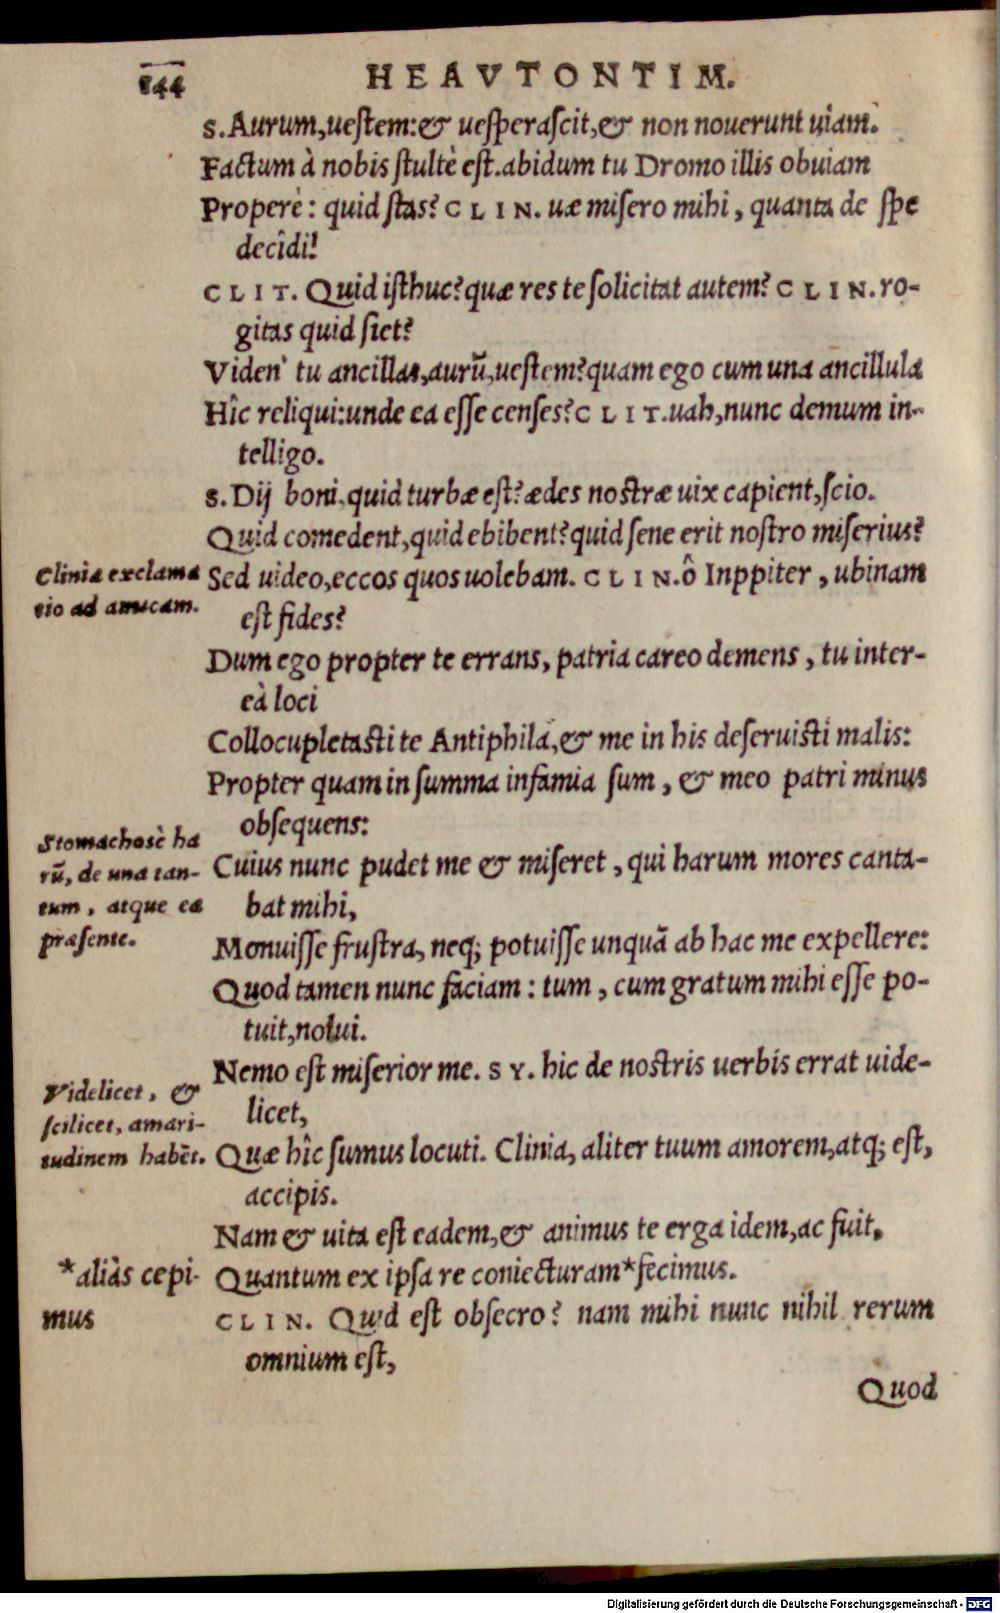 144
HEAVTONTIM.
S. Aurum, uestem: & uesperascit, & non nouerunt uiam.
Factum à nobis stultè est. abidum tu Dromo illis obuiam
Properè: quid stas? CLIN. uæ misero mihi, quanta de spe
decîdi!
CLIT. Quid isthuc? quæ res te solicitat autem? CLIN. ro-
gitas quid siet?
Viden' tu ancillas, aurũ, uestem? quam ego cum una ancillula
Hîc reliqui: unde ea esse censes? CLIT. uah, nunc demum in-
telligo.
S. Dij boni, quid turbæ est? ædes nostræ uix capient, scio.
Quid comedent, quid ebibent? quid sene erit nostro miserius?
Clinia exclama
tio ad amicam.
Sed uideo, eccos quos uolebam. CLIN. ô Inppiter, ubinam
est fides?
Dum ego propter te errans, patria careo demens, tu inter-
eà loci
Collocupletasti te Antiphila, & me in his deseruisti malis:
Propter quam in summa infamia sum, & meo patri minus
obsequens:
Stomachosè ha
rũ, de una tan-
tum, atque ea
præsente.
Cuius nunc pudet me & miseret, qui harum mores canta-
bat mihi,
Monuisse frustra, neq; potuisse unquã ab hac me expellere:
Quod tamen nunc faciam: tum, cum gratum mihi esse po-
tuit, nolui.
Nemo est miserior me. SY. hic de nostris uerbis errat uide-
licet,
Videlicet, &
scilicet, amari-
tudinem habẽt.
Quæ hîc sumus locuti. Clinia, aliter tuum amorem, atq; est,
accipis.
Nam & uita est eadem, & animus te erga idem, ac fuit,
*aliàs cepi-
mus
Quantum ex ipsa re coniecturam*fecimus.
CLIN. Quid est obsecro? nam mihi nunc nihil rerum
omnium est,
Quod
Digitalisierung gefördert durch die Deutsche Forschungsgemeinschaft - DFG